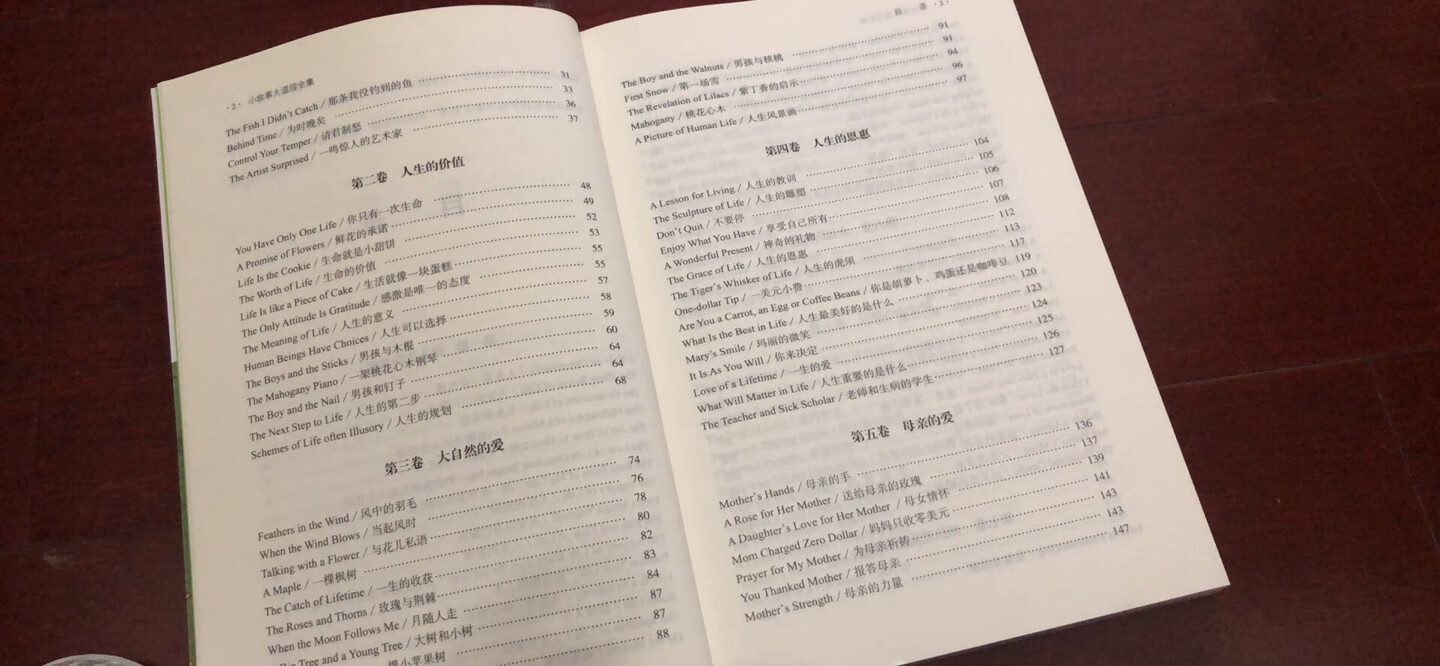 · 2 · 小故事大道理全集
The Fish I Didn't Catch / 那条我没钓到的鱼 …… 31
Behind Time / 为时晚矣 …… 33
Control Your Temper / 请君制怒 …… 36
The Artist Surprised / 一鸣惊人的艺术家 …… 37
第二卷 人生的价值
You Have Only One Life / 你只有一次生命 …… 48
A Promise of Flowers / 鲜花的承诺 …… 49
Life Is the Cookie / 生命就是小甜饼 …… 52
The Worth of Life / 生命的价值 …… 53
Life Is like a Piece of Cake / 生活就像一块蛋糕 …… 55
The Only Attitude Is Gratitude / 感激是唯一的态度 …… 55
The Meaning of Life / 人生的意义 …… 57
Human Beings Have Choices / 人生可以选择 …… 58
The Boys and the Sticks / 男孩与木棍 …… 59
The Mahogany Piano / 一架桃花心木钢琴 …… 60
The Boy and the Nail / 男孩和钉子 …… 64
The Next Step to Life / 人生的第二步 …… 64
Schemes of Life often Illusory / 人生的规划 …… 68
第三卷 大自然的爱
Feathers in the Wind / 风中的羽毛 …… 74
When the Wind Blows / 当起风时 …… 76
Talking with a Flower / 与花儿私语 …… 78
A Maple / 一棵枫树 …… 80
The Catch of Lifetime / 一生的收获 …… 82
The Roses and Thorns / 玫瑰与荆棘 …… 83
When the Moon Follows Me / 月随人走 …… 84
Tree and a Young Tree / 大树和小树 …… 87
棵小苹果树 …… 87
88
目 录 · 3 ·
The Boy and the Walnuts / 男孩与核桃 …… 91
First Snow / 第一场雪 …… 91
The Revelation of Lilacs / 紫丁香的启示 …… 94
Mahogany / 桃花心木 …… 96
A Picture of Human Life / 人生风景画 …… 97
第四卷 人生的恩惠
A Lesson for Living / 人生的教训 …… 104
The Sculpture of Life / 人生的雕塑 …… 105
Don't Quit / 不要停 …… 106
Enjoy What You Have / 享受自己所有 …… 107
A Wonderful Present / 神奇的礼物 …… 108
The Grace of Life / 人生的恩惠 …… 112
The Tiger's Whisker of Life / 人生的虎须 …… 113
One-dollar Tip / 一美元小费 …… 117
Are You a Carrot, an Egg or Coffee Beans / 你是胡萝卜、鸡蛋还是咖啡豆 119
What Is the Best in Life / 人生最美好的是什么 …… 120
Mary's Smile / 玛丽的微笑 …… 123
It Is As You Will / 你来决定 …… 124
Love of a Lifetime / 一生的爱 …… 125
What Will Matter in Life / 人生重要的是什么 …… 126
The Teacher and Sick Scholar / 老师和生病的学生 …… 127
第五卷 母亲的爱
Mother's Hands / 母亲的手 …… 136
A Rose for Her Mother / 送给母亲的玫瑰 …… 137
A Daughter's Love for Her Mother / 母女情怀 …… 139
Mom Charged Zero Dollar / 妈妈只收零美元 …… 141
Prayer for My Mother / 为母亲祈祷 …… 143
You Thanked Mother / 报答母亲 …… 143
Mother's Strength / 母亲的力量 …… 147